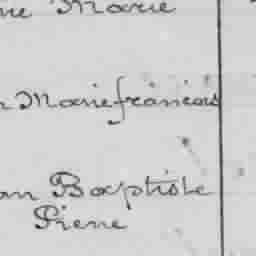 ne Marie
n Marie francois
an Baptiste
Pierre